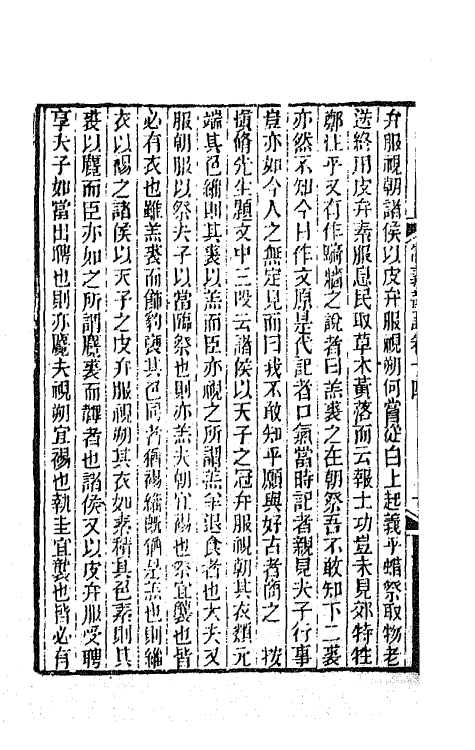 弁服視朝諸侯以皮弁服視朔何嘗從白上起義乎蜡祭取物老
送終用皮弁素服息民取草木黃落而云報土功豈未見郊特牲
鄭注乎又有作騎牆之說者曰羔裘之在朝祭吾不敢知下二裘
亦然不知今日作文原是代記者口氣當時記者親見夫子行事
豈亦如今人之無定見而曰我不敢知乎願與好古者商之 按
慎脩先生題文中三段云諸侯以天子之冠弁服視朝其衣類元
端其色緇則其裘以羔而臣亦視之所謂羔羊退食者也大夫又
服朝服以祭夫子以當臨祭也則亦羔夫朝宜裼也祭宜襲也皆
必有衣也雖羔裘而飾豹褎其色同者猶裼緇旣猶是羔也則緇
衣以裼之諸侯以天子之皮弁服視朔其衣如素積其色素則其
裘以麑而臣亦如之所謂麑裘而韠者也諸侯又以皮弁服受聘
享夫子如當出聘也則亦麑夫視朔宜裼也執圭宜襲也皆必有